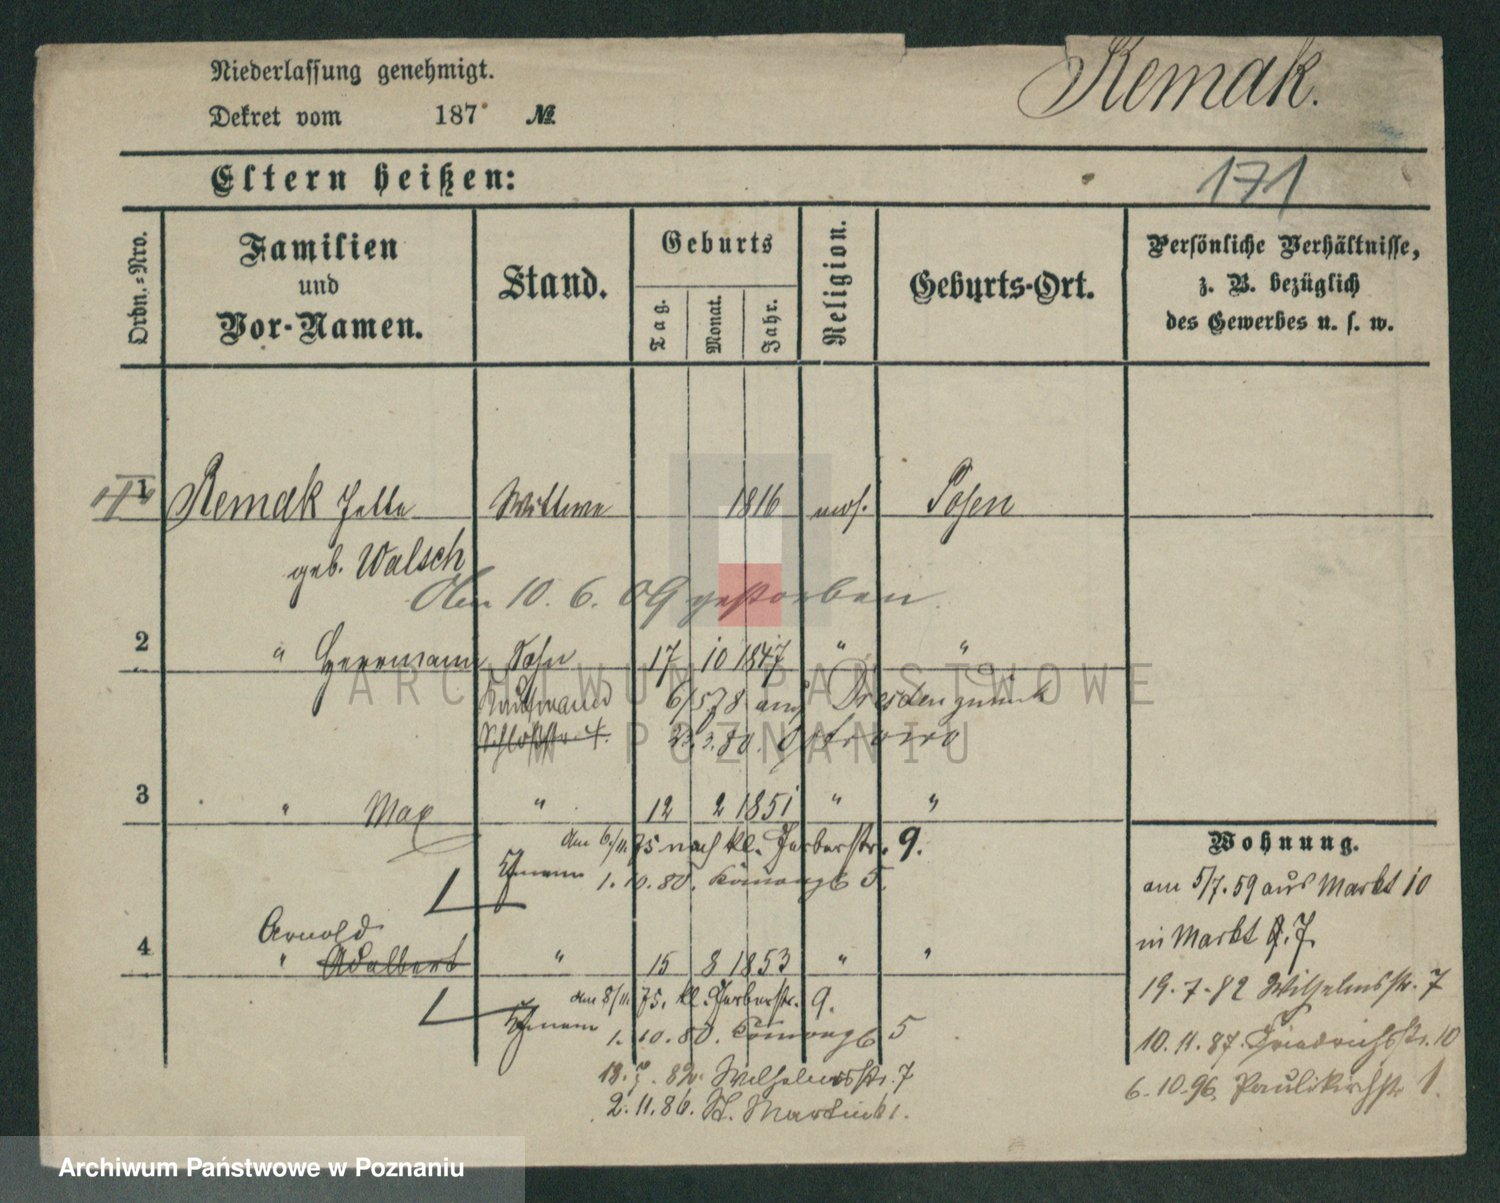 Niederlassung genehmigt.
Dekret vom 187 №
Remak.
171
Eltern heißen:
Ordn.-Nro.
Familien
und
Vor-Namen.
Stand.
Geburts
Tag.
Monat.
Jahr.
Religion.
Geburts-Ort.
Persönliche Verhältnisse,
z. B. bezüglich
des Gewerbes u. s. w.
1 Remak Jette Wittwe 1816 mos. Posen
geb. Walsch
10. 6. 09 gestorben
2 " Herrmann Sohn 17 10 1847 " "
Kaufmann 6/5 78 aus Dresden zurück
Schloßstr. 4. 80. Ostrowo
3 " Max " 12 2 1851 " "
am 6/11. 75 nach kl. Gerberstr. 9.
1. 10. 80. 5.
Arnold
4 " Adalbert " 15 8 1853 " "
am 8/11. 75. kl. Gerberstr. 9.
1. 10. 80. 5
18. 7. 82. Wilhelmsstr. 7
2. 11. 86. St. Martin 61.
Wohnung.
am 5/7. 59 aus Markt 10
in Markt 7.
19. 7. 82 Wilhelmsstr. 7
10. 11. 87. Friedrichsstr. 10
6. 10. 96. Paulikirchstr 1.
ARCHIWUM PAŃSTWOWE
W POZNANIU
Archiwum Państwowe w Poznaniu